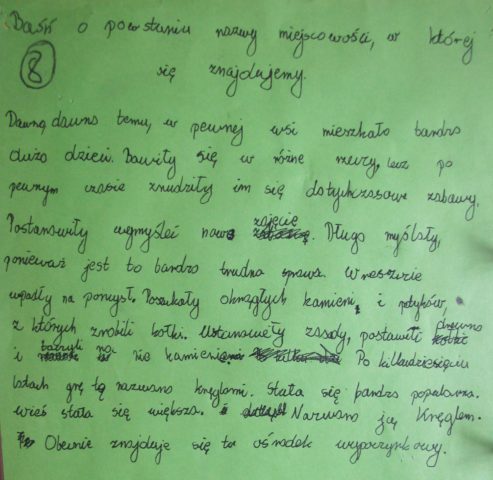 Baśń o powstaniu nazwy miejscowości, w której
8 się znajdujemy.
Dawno, dawno temu, w pewnej wsi mieszkało bardzo
dużo dzieci. Bawiły się w różne zabawy, lecz po
pewnym czasie znudziły im się dotychczasowe zabawy.
Postanowiły wymyśleć nowe zajęcie. Długo myślały,
ponieważ jest to bardzo trudna sprawa. Wreszcie
wpadły na pomysł. Poszukały okrągłych kamieni, i patyków,
z których zrobiły kostki. Ustanowiły zasady, postawiły drewno
i na nie kamienie. Po kilkudziesięciu
latach grę tą nazwano kręglami. Stała się bardzo popularna.
wieś stała się większa. Nazwano ją Kręglem.
Obecnie znajduje się tu ośrodek wypoczynkowy.